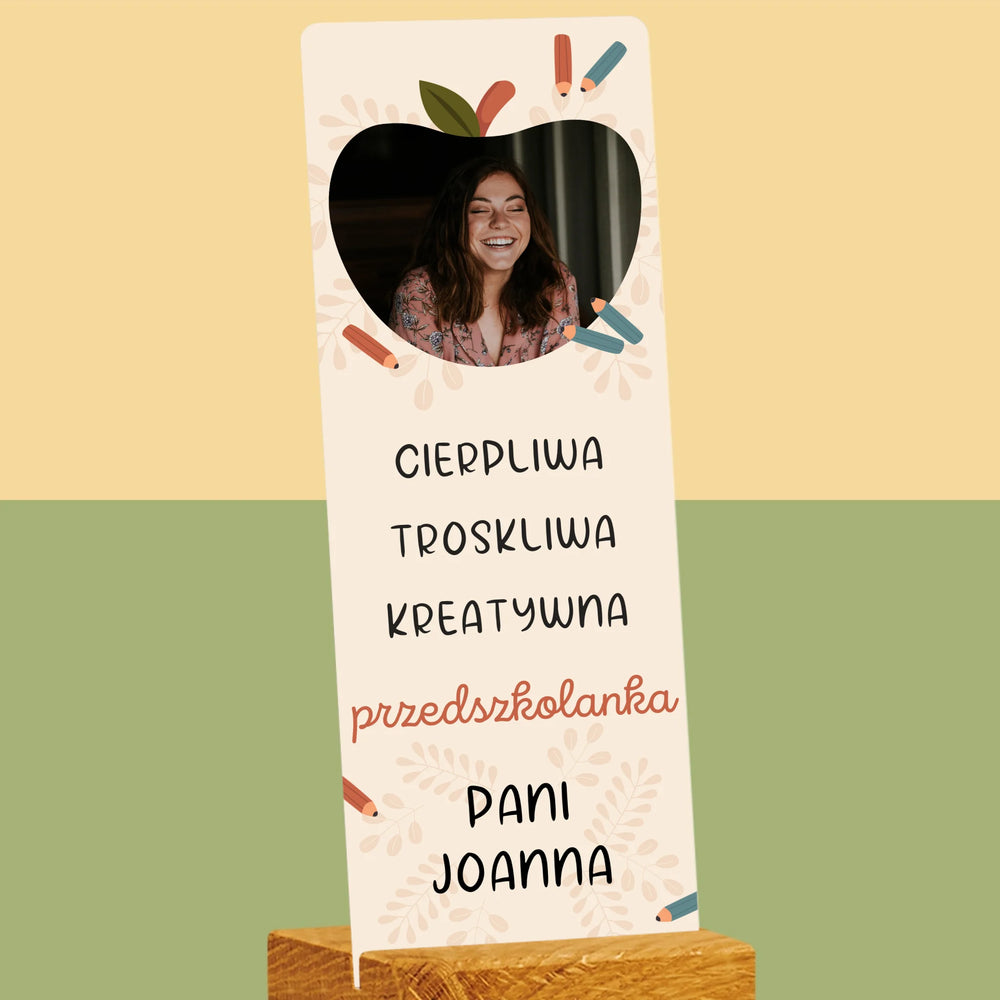 CIERPLIWA
TROSKLIWA
KREATYWNA
przedszkolanka
PANI
JOANNA